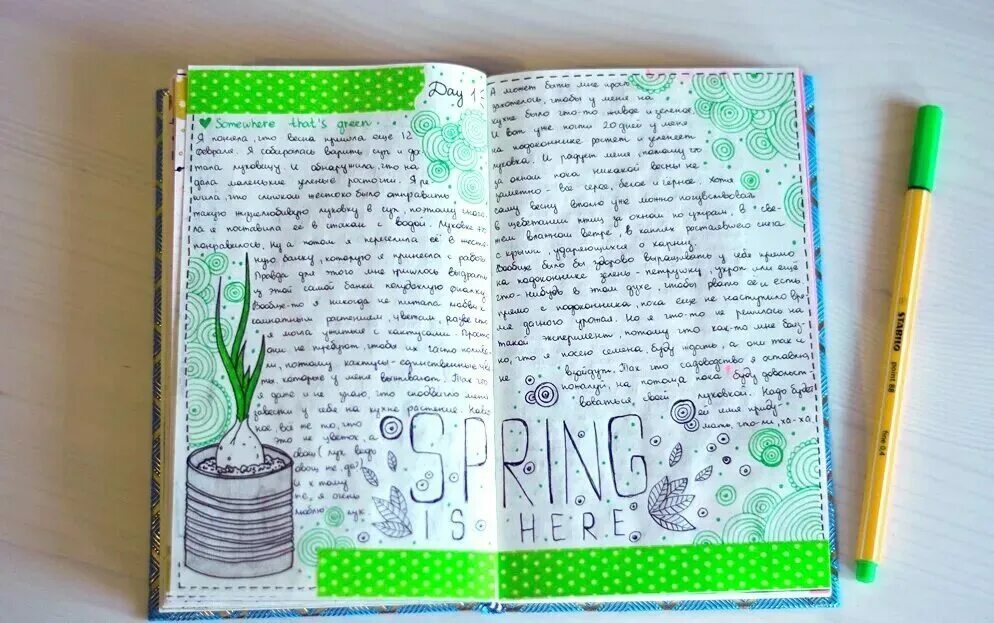 Day 13
Somewhere that's green
Я поняла, что весна пришла ещё 12
февраля. Я собиралась варить суп и до
тала луковицу и обнаружила, что она
дала маленькие зелёные росточки. Я ре
шила, что слишком жестоко было отправить
такую жизнелюбивую луковку в суп, поэтому
ла я поставила её в стакан с водой. Луковке это
понравилось, ну а потом я переселила её в жест
ную банку, которую я принесла с работ
Правда для этого мне пришлось выдрать
из этой самой банки полудохлую фиалку.
Вообще-то я никогда не питала любви к
комнатным растениям, цветам, разве что
я могла ужиться с кактусами. Просто
они не требуют, чтобы их часто полива
ли, поэтому кактусы - единственные цве
ты, которые у меня выживают. Так что
я даже и не знаю, что сподвигло меня
завести у себя на кухне растение. Навер
ное, всё же то, что
это не цветок, а
овощ (лук ведь
овощ, не да?)
и к тому
же, я очень
люблю лук.
А может быть мне прос
захотелось, чтобы у меня на
кухне было что-то живое и зелёное.
И вот уже почти 20 дней у меня
на подоконнике растёт и зеленеет
луковка. И радует меня, потому что
за окном пока никакой весны не
заметно - всё серое, белое и чёрное, хотя
саму весну вполне уже можно почувствовать
в щебетании птиц за окном по утрам, в све-
жем влажном ветре, в каплях растаявшего снега
с крыши, ударяющихся о карниз.
Вообще было бы здорово выращивать у себя прямо
на подоконнике зелень - петрушку, укроп или ещё
что-нибудь в этом духе, чтобы рвать её и есть
прямо с подоконника, пока ещё не наступило вре
мя дачного урожая. Но я что-то не решилась на
такой эксперимент, потому что как-то мне
ко, что я посею семена, буду ждать, а они так и
не взойдут. Так что садоводство я оставлю,
пожалуй, на потом, а пока буду довольст
воваться своей луковкой. Надо будет
ей имя приду-
мать, что-ли, ха-ха
SPRING
IS HERE
STABILO
point 88
fine 0,4